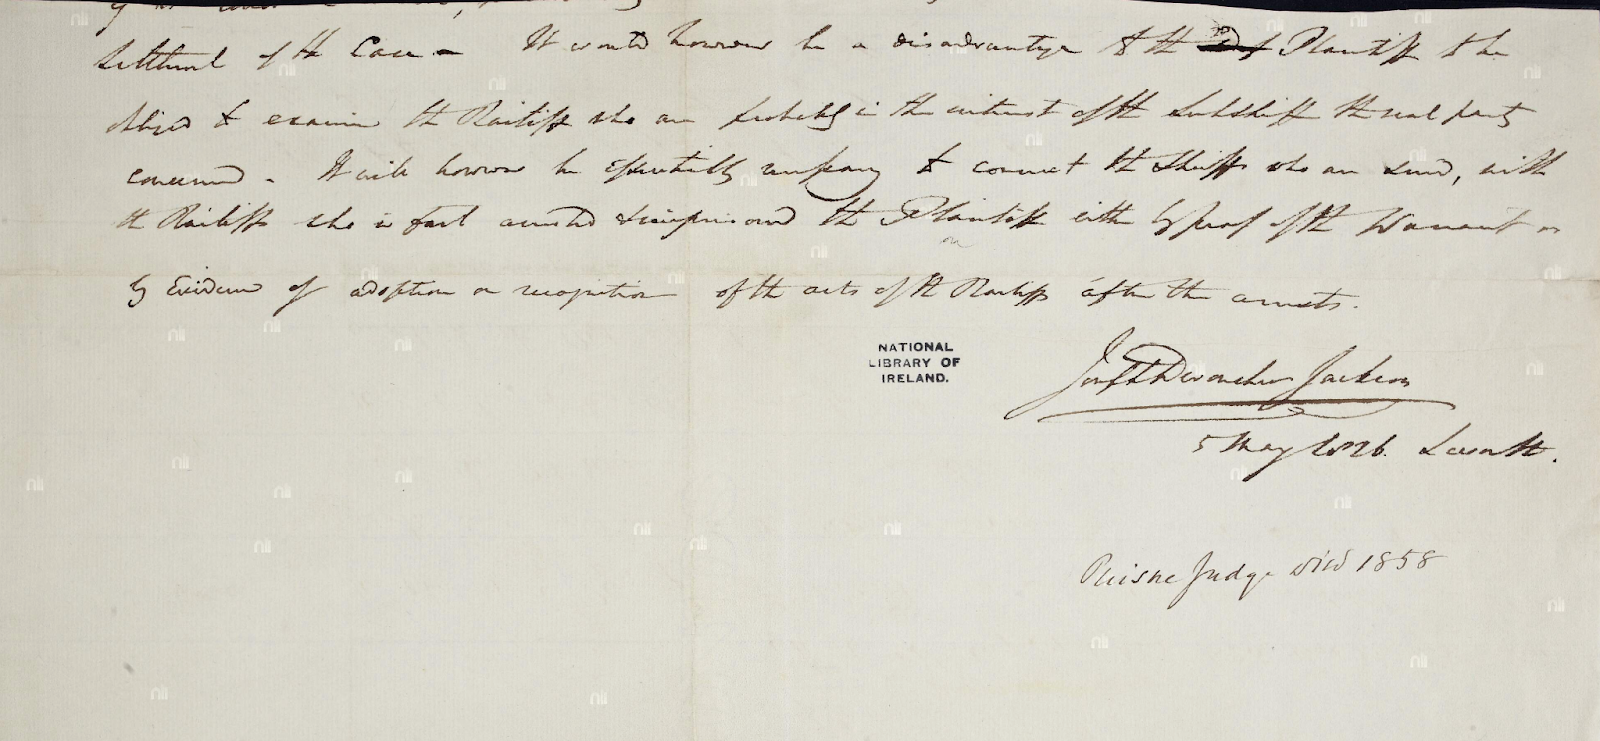 of the Case - It would however be a disadvantage to the Plaintiff to be
obliged to examine the Bailiffs who are probably in the interest of the Subsheriff the real party
concerned - It will however be essentially necessary to connect the Sheriffs who are sued, with
the Bailiffs who in fact arrested & imprisoned the Plaintiff either by proof of the Warrant or
by Evidence of adoption or recognition of the acts of the Bailiffs after the arrests.
NATIONAL
LIBRARY OF
IRELAND.
Joseph Devonsher Jackson
5 May 1826. Leeson St.
Puisne Judge died 1858